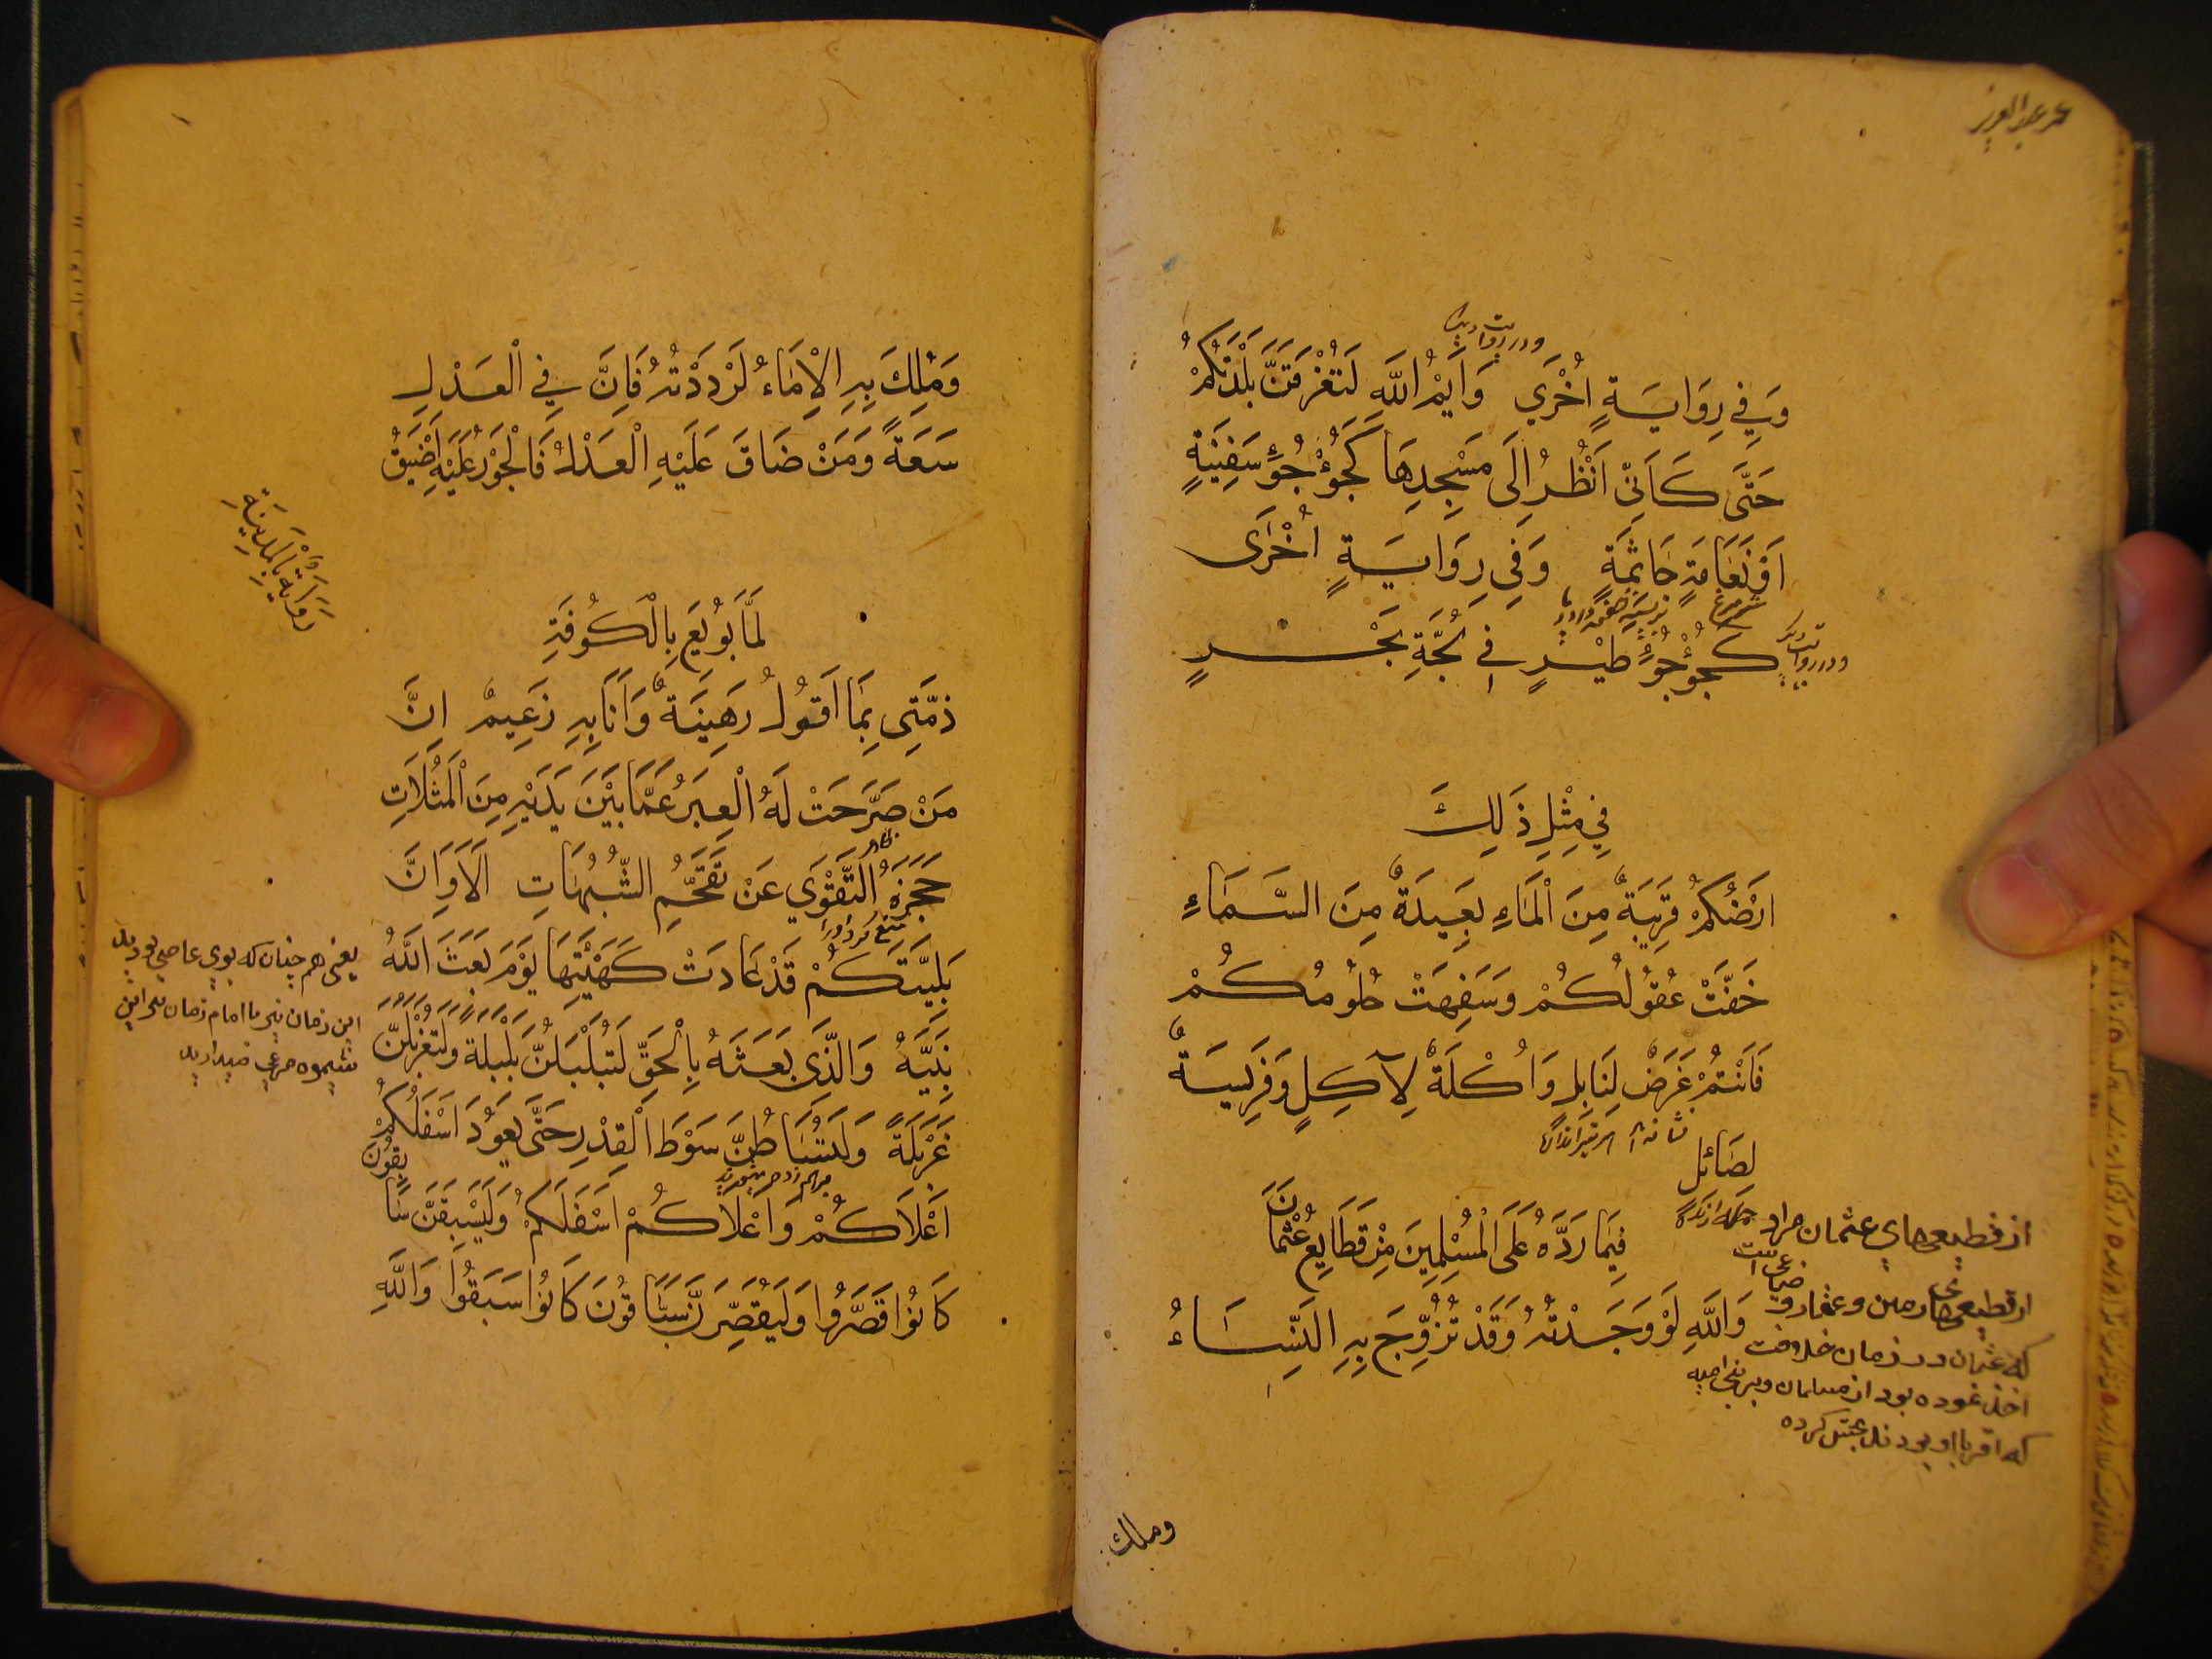 عمر عبدالعزیز
ودر روایت دیگر
وَفِي رِوَايَةٍ اُخْرَي وَايْمُ اللَّهِ لَتُغْرَقَنَّ بَلْدَتُكُمْ
حَتَّى كَاَنِّي اَنْظُرُ اِلَى مَسْجِدِهَا كَجُؤْجُؤِ سَفِينَةٍ
اَوْ نَعَامَةٍ جَاثِمَةٍ وَفِي رِوَايَةٍ اُخْرَى
ودر روایت دیگر
كَجُؤْجُؤِ طَيْرٍ فِي لُجَّةِ بَحْرٍ
فِي مِثْلِ ذَلِكَ
اَرْضُكُمْ قَرِيبَةٌ مِنَ الْمَاءِ بَعِيدَةٌ مِنَ السَّمَاءِ
خَفَّتْ عُقُولُكُمْ وَسَفِهَتْ حُلُومُكُمْ
فَاَنْتُمْ غَرَضٌ لِنَابِلٍ وَاُكْلَةٌ لِآكِلٍ وَفَرِيسَةٌ
لِصَائل
فِيمَا رَدَّهُ عَلَى الْمُسْلِمِينَ مِنْ قَطَايِعِ عُثْمَانَ
وَاللَّهِ لَوْ وَجَدْتُهُ وَقَدْ تُزُوِّجَ بِهِ النِّسَاءُ
از قطیعی‌های عثمان مراد
که عثمان در زمان خلافت
اخذ نموده بود از مسلمانان وببنی امیه
که اقربا او بودند بخش کرده
وملك
وَمُلِكَ بِهِ الْاِمَاءُ لَرَدَدْتُهُ فَاِنَّ فِي الْعَدْلِ
سَعَةً وَمَنْ ضَاقَ عَلَيْهِ الْعَدْلُ فَالْجَوْرُ عَلَيْهِ اَضْيَقُ
بِالْمَدِينَةِ
لَمَّا بُويِعَ بِالْكُوفَةِ
ذِمَّتِي بِمَا اَقُولُ رَهِينَةٌ وَاَنَا بِهِ زَعِيمٌ اِنَّ
مَنْ صَرَّحَتْ لَهُ الْعِبَرُ عَمَّا بَيْنَ يَدَيْهِ مِنَ الْمَثُلَاتِ
حَجَزَهُ التَّقْوَي عَنْ تَقَحُّمِ الشُّبُهَاتِ اَلَا وَاِنَّ
منع کرد او را
بَلِيَّتَكُمْ قَدْ عَادَتْ كَهَيْئَتِهَا يَوْمَ بَعَثَ اللَّهُ
نَبِيَّهُ وَالَّذِي بَعَثَهُ بِالْحَقِّ لَتُبَلْبَلُنَّ بَلْبَلَةً وَلَتُغَرْبَلُنَّ
غَرْبَلَةً وَلَتُسَاطُنَّ سَوْطَ الْقِدْرِ حَتَّى يَعُودَ اَسْفَلُكُمْ
اَعْلَاكُمْ وَاَعْلَاكُمْ اَسْفَلَكُمْ وَلَيَسْبِقَنَّ سَابِقُونَ
كَانُوا قَصَّرُوا وَلَيُقَصِّرَنَّ سَبَّاقُونَ كَانُوا سَبَقُوا وَاللَّهِ
یعنی هم چنان که بوی عاصی بودید
این زمان نیز با امام زمان